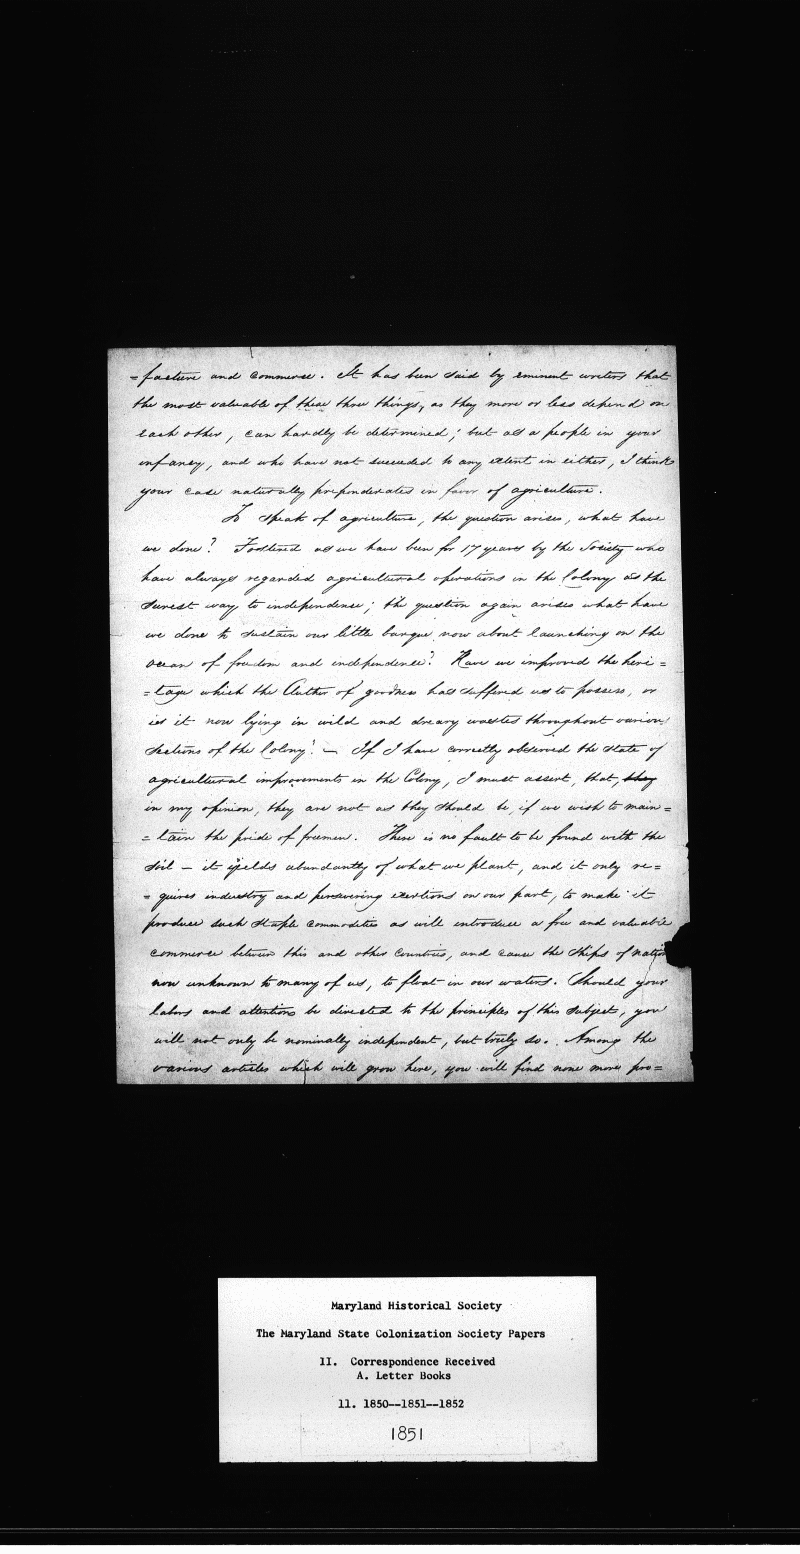 =facture and commerce. It has been said by eminent writers that
the most valuable of these three things, as they more or less depend on
each other, can hardly be determined; but as a people in your
infancy, and who have not succeeded to any extent in either, I think
your case naturally preponderates in favor of agriculture.
To speak of agriculture, the question arises, what have
we done? Fostered as we have been for 17 years by the Society who
have always regarded agricultural operations in the Colony as the
surest way to independence; the question again arises what have
we done to sustain our little barque now about launching on the
ocean of freedom and independence? Have we improved the heri=
=tage which the Author of goodness has suffered us to possess, or
is it now lying in wild and dreary wastes throughout various
sections of the Colony? — If I have correctly observed the state of
agricultural improvements in the Colony, I must assert, that, they
in my opinion, they are not as they should be, if we wish to main=
=tain the pride of freemen. There is no fault to be found with the
soil — it yields abundantly of what we plant, and it only re=
=quires industry and persevering exertions on our part, to make it
produce such staple commodities as will introduce a free and valuable
commerce between this and other countries, and cause the ships of nation
now unknown to many of us, to float in our waters. Should your
labors and attentions be directed to the principles of this subject, you
will not only be nominally independent, but truly so. Among the
various articles which will grow here, you will find none more pro=
Maryland Historical Society
The Maryland State Colonization Society Papers
II. Correspondence Received
A. Letter Books
11. 1850--1851--1852
1851